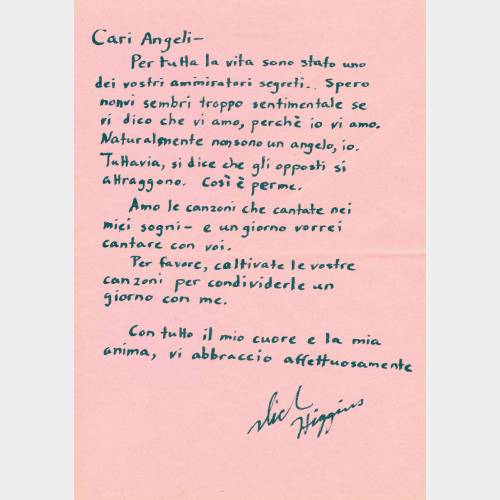 Cari Angeli-
Per tutta la vita sono stato uno
dei vostri ammiratori segreti.. Spero
nonvi sembri troppo sentimentale se
vi dico che vi amo, perchè io vi amo.
Naturalmente nonsono un angelo, io.
Tuttavia, si dice che gli opposti si
attraggono. Così è perme.
Amo le canzoni che cantate nei
miei sogni- e un giorno vorrei
cantare con voi.
Per favore, coltivate le vostre
canzoni per condividerle un
giorno con me.
Con tutto il mio cuore e la mia
anima, vi abbraccio affettuosamente
Dick
Higgins